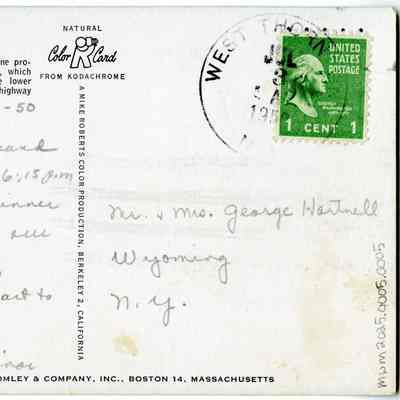 NATURAL
Color Card
FROM KODACHROME
ne pro-
, which
e lower
highway
-50
card
6:15 pm
inner
all
art to
A MIKE ROBERTS COLOR PRODUCTION, BERKELEY 2, CALIFORNIA
WEST THOR
JUL
3
195
UNITED
STATES
POSTAGE
1 CENT 1
Mr. & Mrs. George Hartnell
Wyoming
N.Y.
MWM2025.0005.0005
OMLEY & COMPANY, INC., BOSTON 14, MASSACHUSETTS